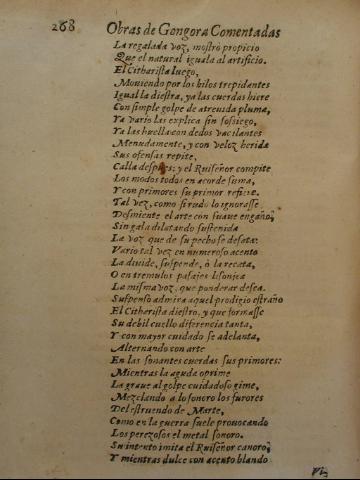 288 Obras de Gongora Comentadas
La regalada voz, mostrò propicio
Que el natural iguala al artificio.
El Citharista luego,
Moviendo por los hilos trepidantes
Igual la diestra, ya las cuerdas hiere
Con simple golpe de atrevida pluma,
Ya vario las explica sin sossiego,
Ya las huella con dedos vacilantes
Menudamente, y con veloz herida
Sus ofensas repite,
Calla despues; y el Ruiseñor compite
Los modos todos en acorde suma,
Y con primores su primor refiere.
Tal vez, como si rudo lo ignorasse
Desmiente el arte con suave engaño,
Sin gala dilatando sustenida
La voz que de su pecho se desata:
Vario tal vez en numeroso acento
La divide, suspende, ò la recata,
O en tremulos pasajes lisonica
La misma voz, que ponderar desea.
Suspenso admira aquel prodigio estraño
El Citharista diestro, y que formasse
Su debil cuello diferencia tanta,
Y con mayor cuidado se adelanta,
Alternando con arte
En las sonantes cuerdas sus primores:
Mientras la aguda oprime
La grave al golpe cuidadoso gime,
Mezclando a lo sonoro los furores
Del estruendo de Marte,
Como en la guerra suele provocando
Los perezosos el metal sonoro.
Su intento imita el Ruiseñor canoro;
Y mientras dulce con acento blando